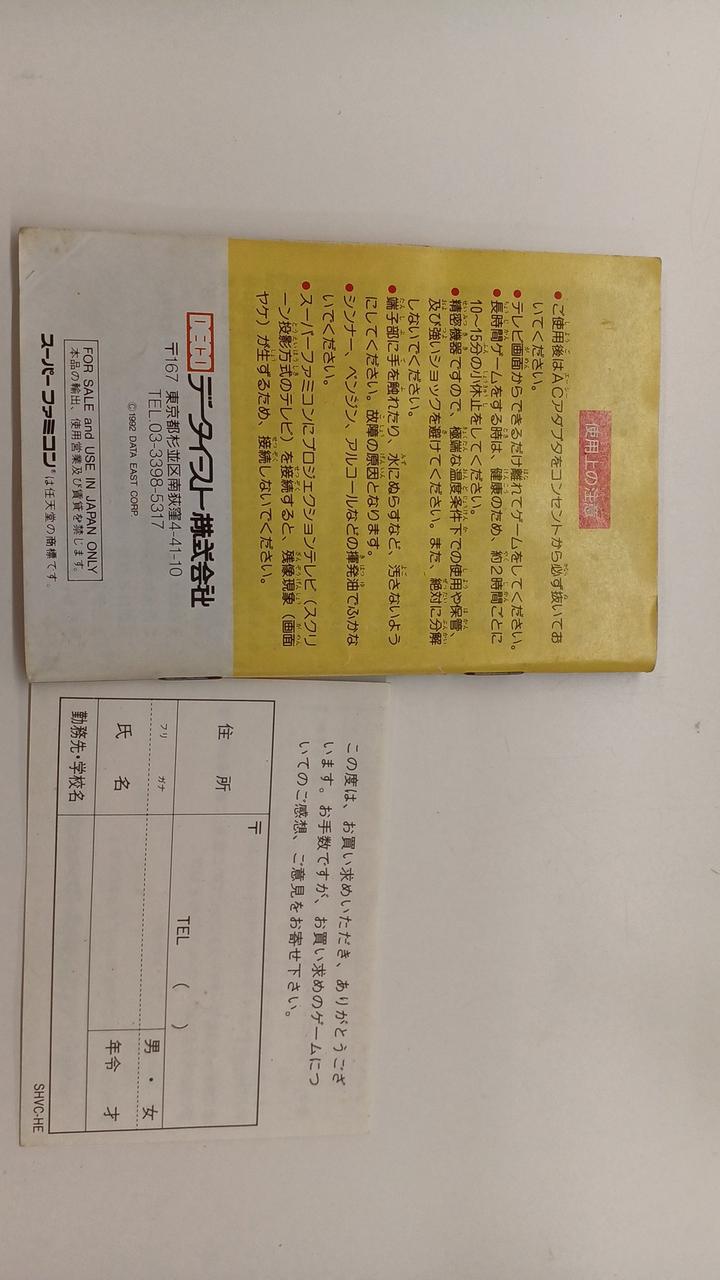 使用上の注意
●ご使用後はACアダプタをコンセントから必ず抜いてお
いてください。
●テレビ画面からできるだけ離れてゲームをしてください。
●長時間ゲームをする時は、健康のため、約2時間ごとに
10〜15分の小休止をしてください。
●精密機器ですので、極端な温度条件下での使用や保管、
及び強いショックを避けてください。また、絶対に分解
しないでください。
●端子部に手を触れたり、水にぬらすなど、汚さないよう
にしてください。故障の原因となります。
●シンナー、ベンジン、アルコールなどの揮発油でふかな
いでください。
●スーパーファミコンにプロジェクションテレビ(スクリ
ーン投影方式のテレビ)を接続すると、残像現象(画面
ヤケ)が生ずるため、接続しないでください。
DECO データイースト株式会社
〒167 東京都杉並区南荻窪4-41-10
TEL.03-3398-5317
©1992 DATA EAST CORP
FOR SALE and USE IN JAPAN ONLY
本品の輸出、使用営業及び賃貸を禁じます。
スーパーファミコン®は任天堂の商標です。
この度は、お買い求めいただき、ありがとうござ
います。お手数ですが、お買い求めのゲームにつ
いてのご感想、ご意見をお寄せ下さい。
住所
〒
TEL ( )
フリ ガナ
氏名
男・女
年令 才
勤務先・学校名
SHVC-HE